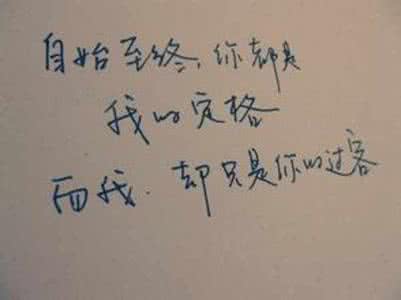 自始至终，你都是
我的定格
而我.却只是你的过客